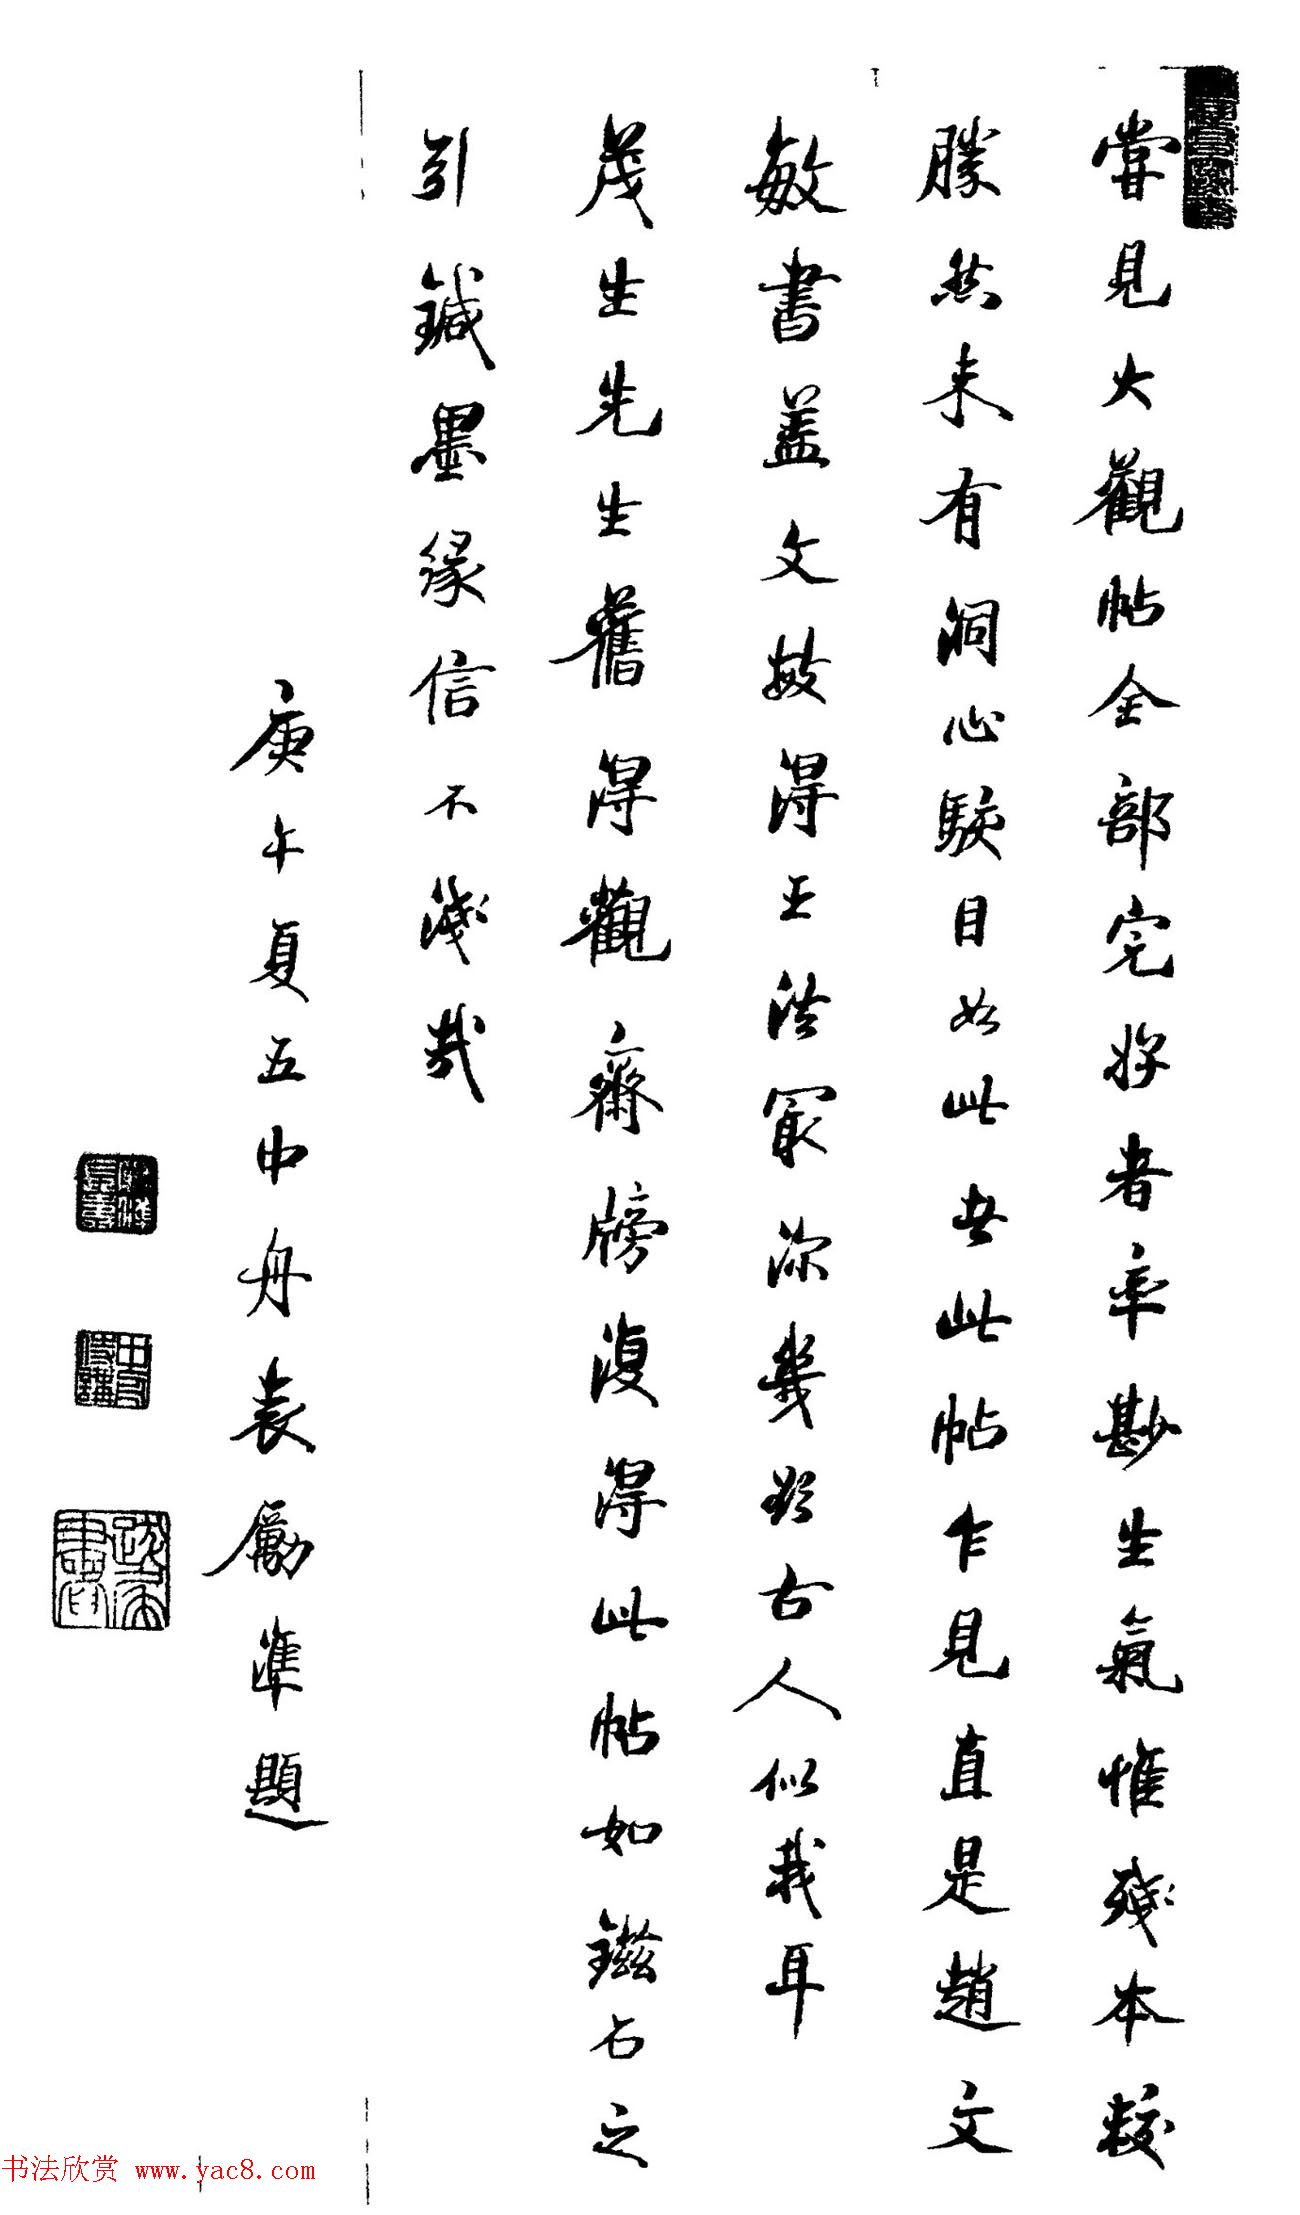 嘗見大觀帖全部完好者率尠生氣惟殘本較
勝然未有洞心駭目如此者此帖乍見直是趙文
敏書蓋文敏得王法最深幾欲古人似我耳
茂生先生舊得觀齋牓復得此帖如鎡石之
引鍼墨緣信不淺哉
庚午夏五中舟袁勵準題
书法欣赏 www.yac8.com